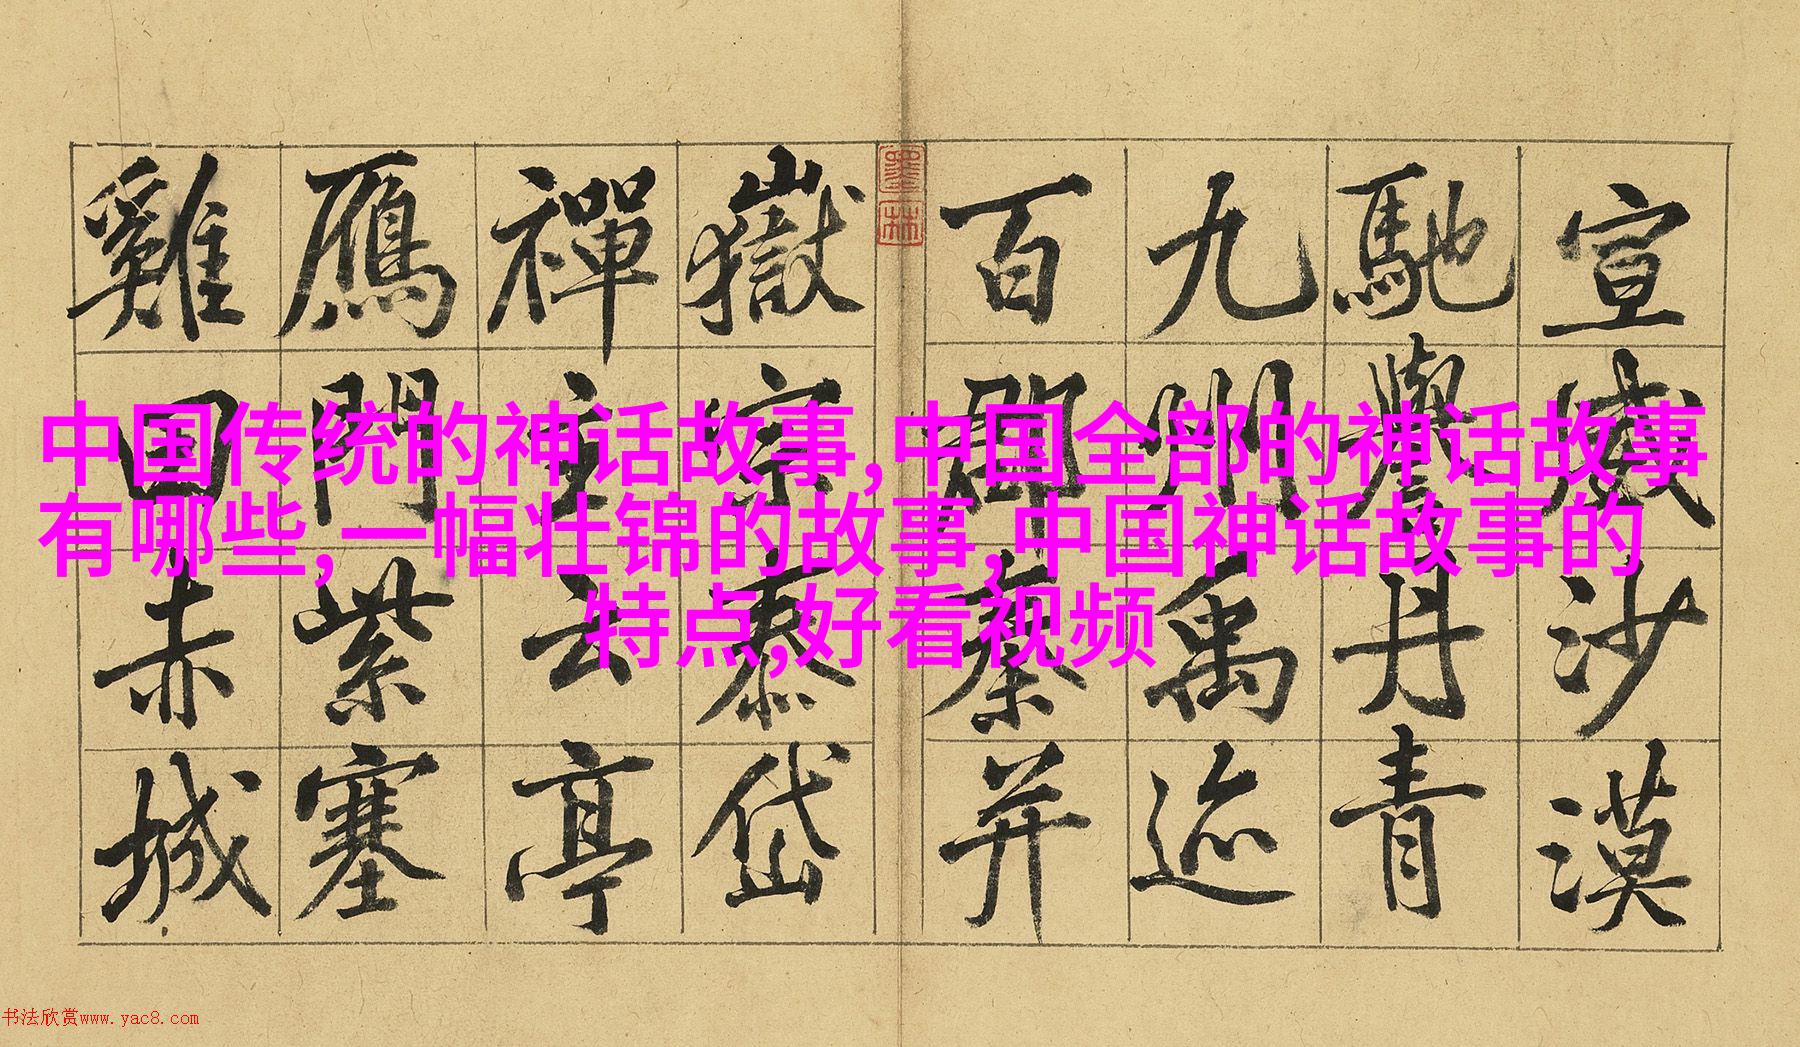 中国传统的神话故事,中国全部的神话故事
有哪些,一幅壮锦的故事,中国神话故事的
特点,好看视频
宣威沙漠
馳譽丹青
九州禹迹
百郡秦并
墨林
嶽宗泰岱
禪主云亭
鴈門紫塞
雞田赤城
书法欣赏www.yac8.com